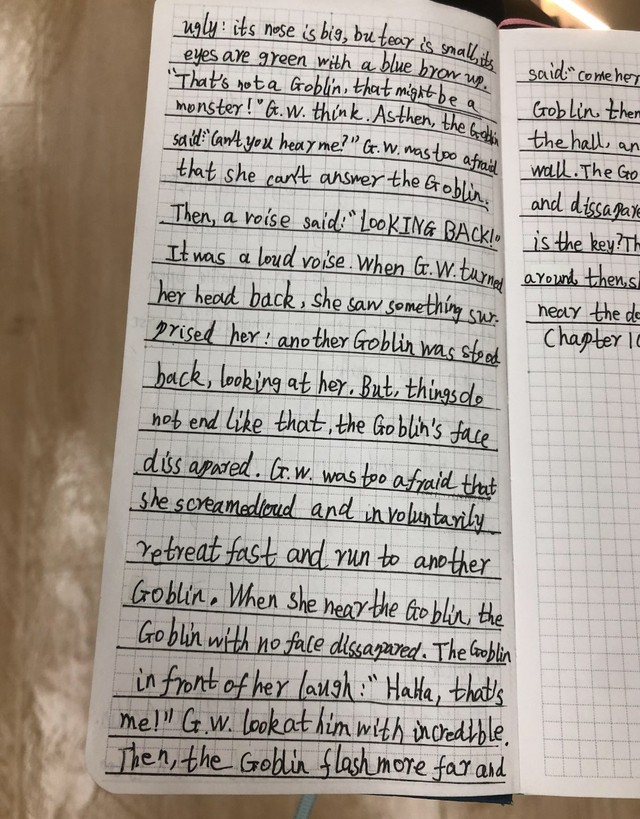 ugly: its nose is big, but ear is small, its
eyes are green with a blue brow up.
"That's not a Goblin, that might be a
monster!" G.W. think. As then, the Goblin
said: "Can't you hear me?" G.W. was too afraid
that she can't answer the Goblin.
Then, a voise said: "LOOKING BACK!"
It was a loud voise. When G.W. turned
her head back, she saw something sur-
prised her: another Goblin was stood
back, looking at her. But, things do
not end like that, the Goblin's face
diss apared. G.W. was too afraid that
she screamed loud and involuntarily
retreat fast and run to another
Goblin. When she near the Goblin, the
Goblin with no face dissapared. The Goblin
in front of her laugh: "HaHa, that's
me!" G.W. look at him with incredible.
Then, the Goblin flash more far and
said: "come her
Goblin, then
the hall, an
wall. The Go
and dissapare
is the key? Th
around, then, s
near the do
Chapter 10